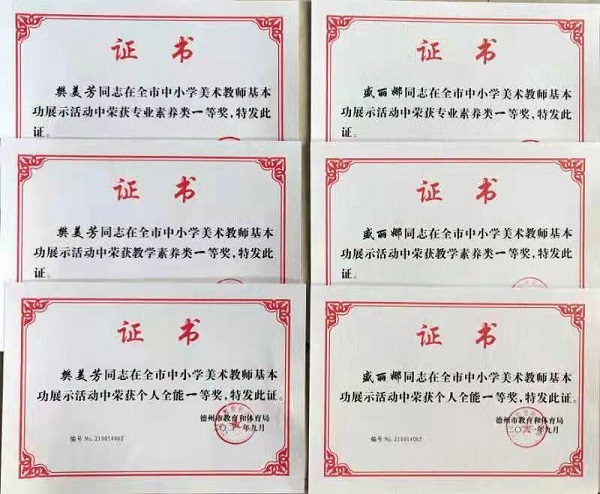 证书
樊美芳同志在全市中小学美术教师基本
功展示活动中荣获专业素养类一等奖，特发此
证。
证书
盛丽娜同志在全市中小学美术教师基本
功展示活动中荣获专业素养类一等奖，特发此
证。
证书
樊美芳同志在全市中小学美术教师基本
功展示活动中荣获教学素养类一等奖，特发此
证。
证书
盛丽娜同志在全市中小学美术教师基本
功展示活动中荣获教学素养类一等奖，特发此
证。
证书
樊美芳同志在全市中小学美术教师基本
功展示活动中荣获个人全能一等奖，特发此证。
德州市教育和体育局
二〇二一年九月
编号 No. 210014062
证书
盛丽娜同志在全市中小学美术教师基本
功展示活动中荣获个人全能一等奖，特发此证。
德州市教育和体育局
二〇二一年九月
编号 No. 210014085